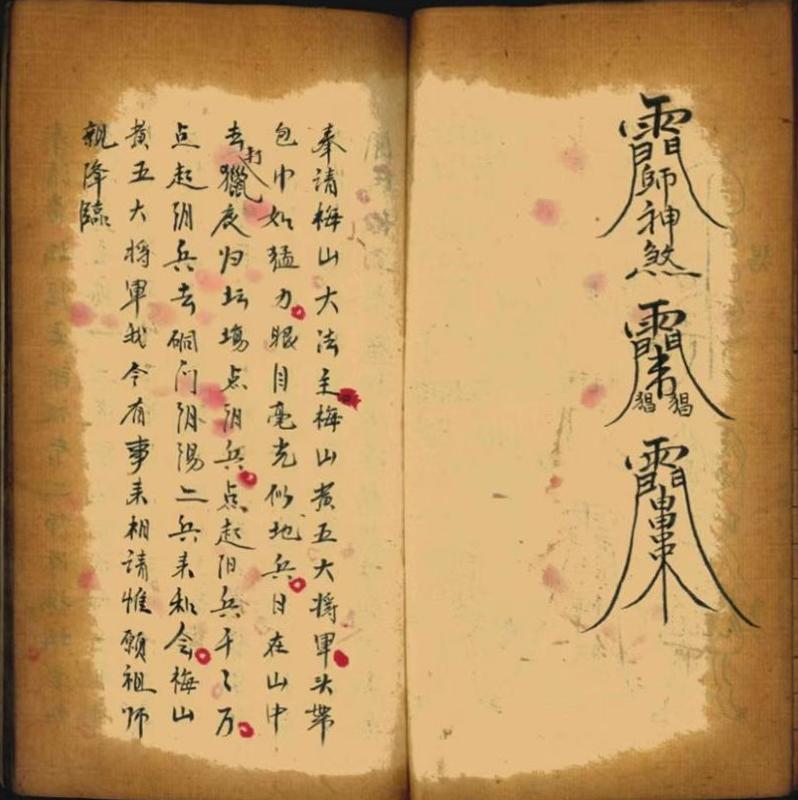 師神煞
猖 猖
奉請梅山大法主梅山黄五大将軍头带
包巾如猛力眼目毫光似地兵日在山中
去打獵夜归坛塲点阴兵点起阳兵千々万
点起阴兵去硐门阴陽二兵来和会梅山
黄五大将軍我今有事来相請惟願祖师
親降臨